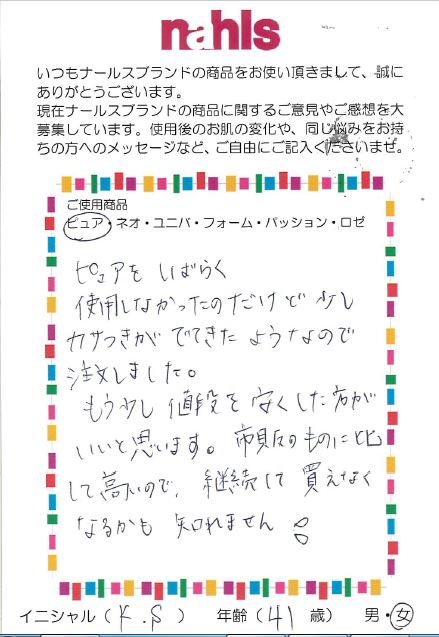 nahls
いつもナールスブランドの商品をお使い頂きまして、誠に
ありがとうございます。
現在ナールスブランドの商品に関するご意見やご感想を大
募集しています。使用後のお肌の変化や、同じ悩みをお持
ちの方へのメッセージなど、ご自由にご記入くださいませ。
ご使用商品
ピュア・ネオ・ユニバ・フォーム・パッション・ロゼ
ピュアを しばらく
使用しなかったのだけど 少し
カサつきが でてきた ようなので
注文しました。
もう少し 値段を 安くした方が
いいと思います。市販のものに比
して高いので、継続して 買えなく
なるかも 知れません。
イニシャル ( K.S ) 年齢 ( 41 歳 ) 男・女